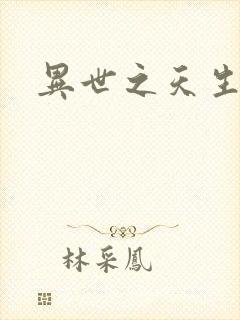 異世之天生
林采鳳